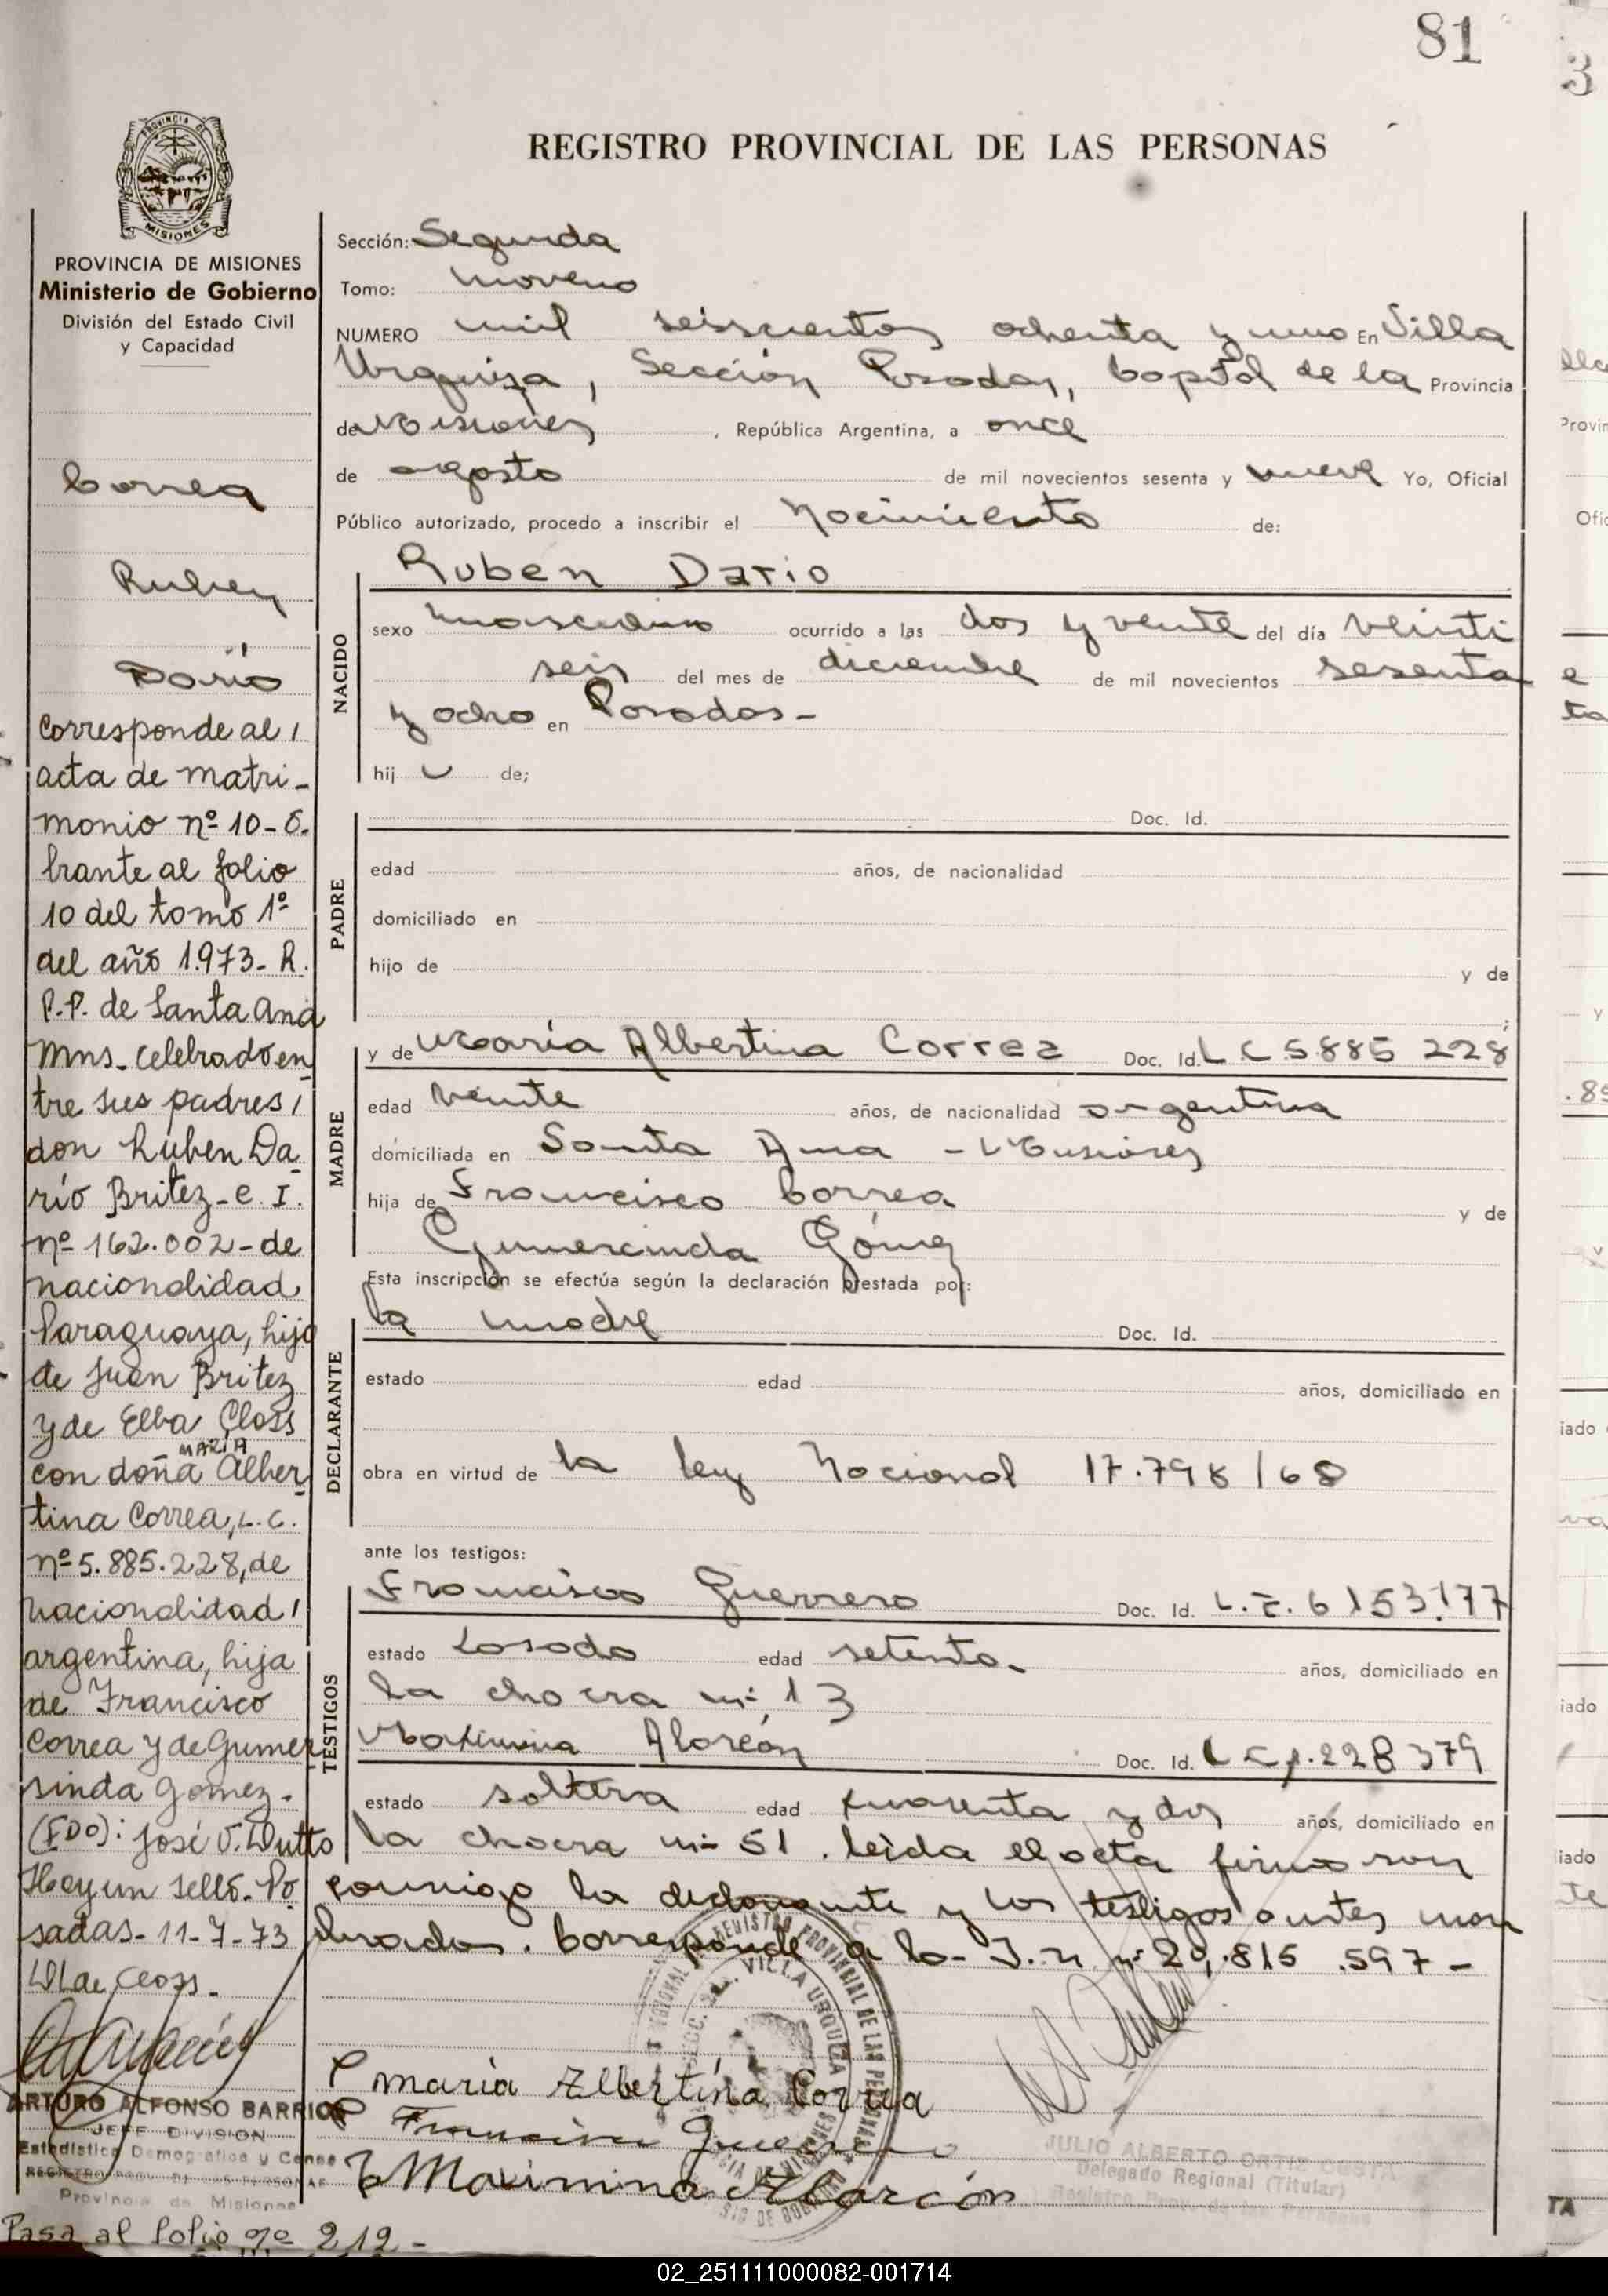 81
REGISTRO PROVINCIAL DE LAS PERSONAS
PROVINCIA DE MISIONES
Ministerio de Gobierno
División del Estado Civil
y Capacidad
Correa
Ruben
Dario
Corresponde al
acta de matri-
monio nº 10-O.
brante al folio
10 del tomo 1º
del año 1.973- R.
P.P. de Santa Ana
Mns. celebrado en
tre sus padres
don Ruben Da
río Britez- C. I.
nº 162.002- de
nacionalidad
Paraguaya, hijo
de Juan Britez
y de Elba Closs
MARIA
con doña Alber
tina Correa, L. C.
nº 5.885.228, de
nacionalidad
argentina, hija
de Francisco
Correa y de Gumer
sinda Gomez.
(FDO): José V. Dutto
Hay un sello. Po
sadas- 11-7-73
de Closs.
ARTURO ALFONSO BARRIOS
JEFE DIVISION
Estadistica Demografica y Censo
REGISTRO PROV. DE LAS PERSONAS
Provincia de Misiones
Pasa al folio nº 212-
Sección: Segunda
Tomo: noveno
NUMERO mil seiscientos ochenta y uno En Villa
Urquiza, Sección Posadas, Capital de la Provincia
de Misiones, República Argentina, a once
de agosto de mil novecientos sesenta y nueve Yo, Oficial
Público autorizado, procedo a inscribir el Nacimiento de:
NACIDO
Ruben Dario
sexo masculino ocurrido a las dos y veinte del día veinti
seis del mes de diciembre de mil novecientos sesenta
y ocho en Posadas-
hij o de;
PADRE
Doc. Id.
edad años, de nacionalidad
domiciliado en
hijo de y de
;
MADRE
y de María Albertina Correa Doc. Id. L C 5.885 228
edad veinte años, de nacionalidad argentina
domiciliada en Santa Ana - Misiones
hija de Francisco Correa y de
Gumercinda Gómez
Esta inscripción se efectúa según la declaración prestada por:
DECLARANTE
la madre Doc. Id.
estado edad años, domiciliado en
obra en virtud de la ley Nacional 17.798/68
ante los testigos:
TESTIGOS
Francisco Guerrero Doc. Id. L.E. 6153.177
estado casado edad setenta- años, domiciliado en
la chacra nº 13
Maximina Alarcón Doc. Id. L C 1.228 379
estado soltera edad cuarenta y dos años, domiciliado en
la chacra nº 51. leida el acta firmaron
conmigo la declarante y los testigos antes nom
brados. Corresponde a la- I. n nº 20.815 .597-
maria Albertina Correa
Francisco Guerrero
Maximina Alarcón
REGISTRO PROVINCIAL DE LAS PERSONAS
VILLA URQUIZA
JULIO ALBERTO ORTIZ COSTA
Delegado Regional (Titular)
Registro Prov. de las Personas
02_251111000082-001714